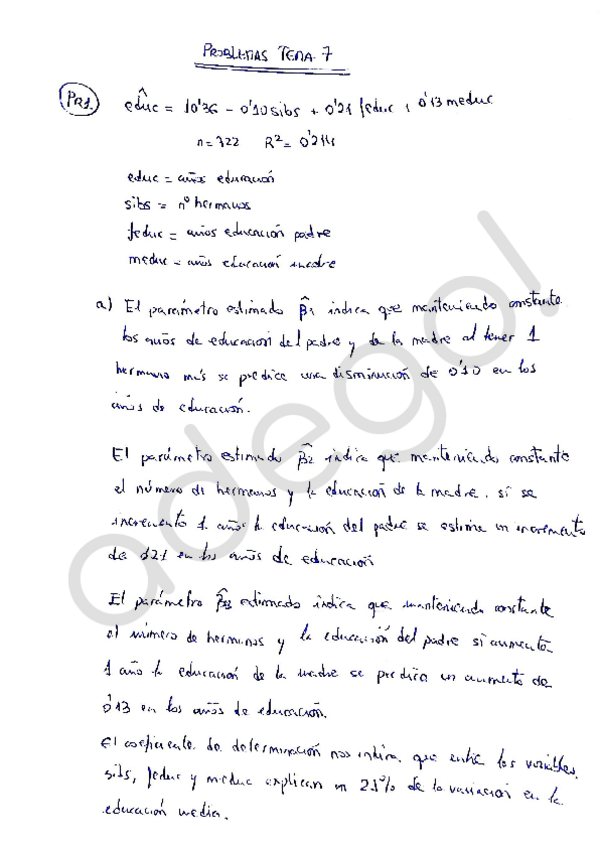 PROBLEMAS TEMA 7
PR1. educ^ = 10'36 - 0'10 sibs + 0'21 feduc + 0'13 meduc
n = 722 R² = 0'214
educ = años educación
sibs = nº hermanos
feduc = años educación padre
meduc = años educación madre
a) El parámetro estimado β̂1 indica que manteniendo constante
los años de educación del padre y de la madre al tener 1
hermano más se predice una disminución de 0'10 en los
años de educación.
El parámetro estimado β̂2 indica que manteniendo constante
el número de hermanos y la educación de la madre, si se
incrementa 1 años la educación del padre se estima un incremento
de 0'21 en los años de educación
El parámetro β̂3 estimado indica que manteniendo constante
el número de hermanos y la educación del padre si aumenta
1 año la educación de la madre se predice un aumento de
0'13 en los años de educación.
El coeficiente de determinación nos indica que entre las variables
sibs, feduc y meduc explican un 21% de la variación en la
educación media.
adego!